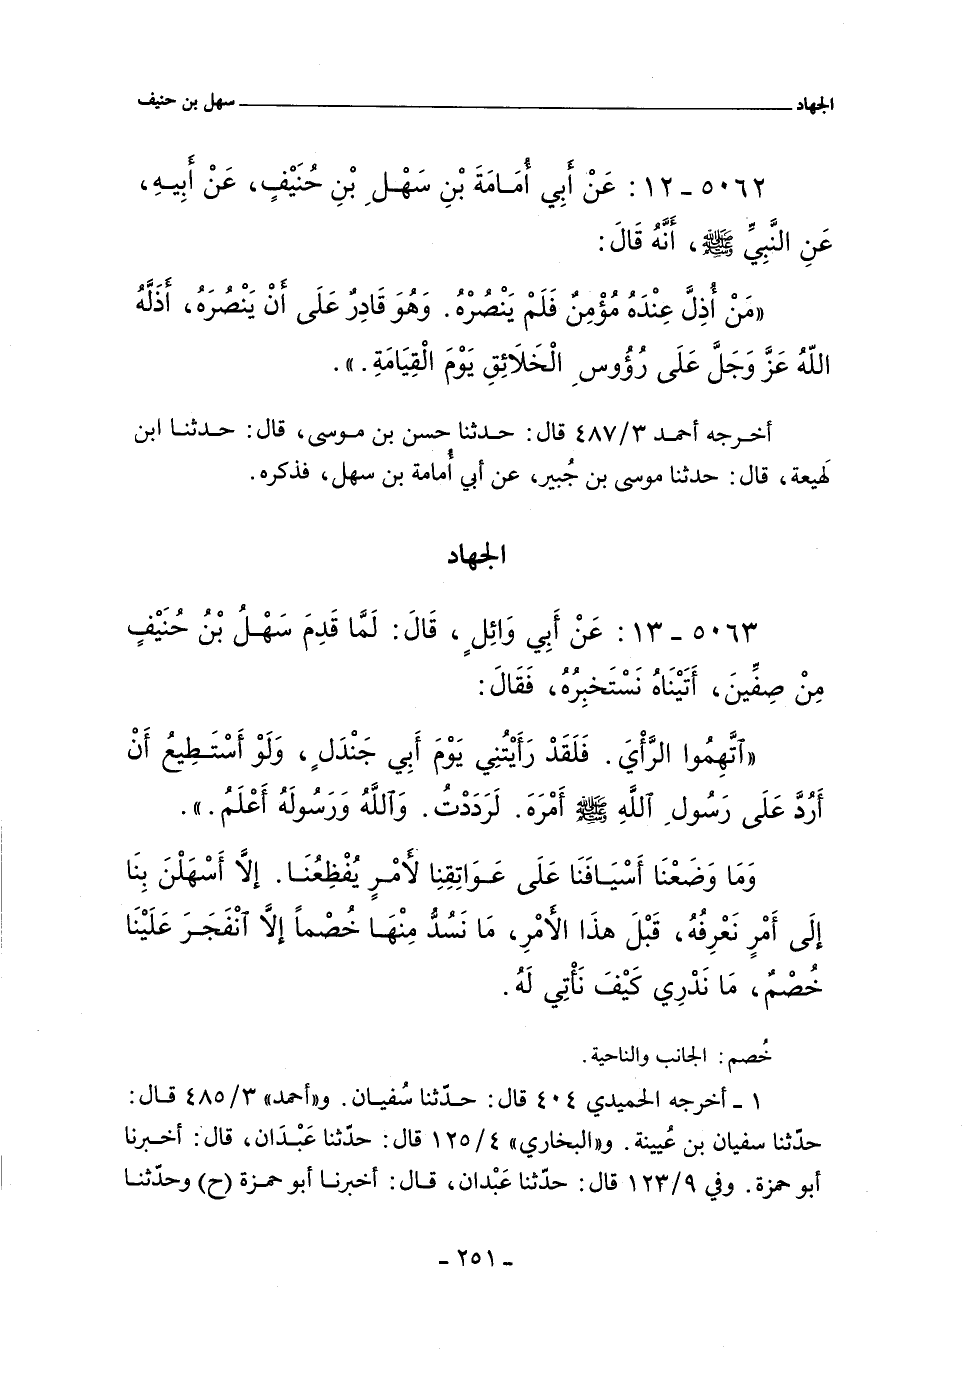 الجهاد ـــــــــــــــــــــــــــــــــــــــ سهل بن حنيف
٥٠٦٢ ـ ١٢ : عَنْ أَبِي أُمَامَةَ بْنِ سَهْلِ بْنِ حُنَيْفٍ، عَنْ أَبِيهِ،
عَنِ النَّبِيِّ ﷺ، أَنَّهُ قَالَ:
«مَنْ أُذِلَّ عِنْدَهُ مُؤْمِنٌ فَلَمْ يَنْصُرْهُ. وَهُوَ قَادِرٌ عَلَى أَنْ يَنْصُرَهُ، أَذَلَّهُ
اللّهُ عَزَّ وَجَلَّ عَلَى رُؤُوسِ الْخَلَائِقِ يَوْمَ الْقِيَامَةِ.».
أخرجه أحمد ٤٨٧/٣ قال: حدثنا حسن بن موسى، قال: حدثنا ابن
لَهيعة، قال: حدثنا موسى بن جُبير، عن أبي أُمامة بن سهل، فذكره.
الجهاد
٥٠٦٣ ـ ١٣ : عَنْ أَبِي وَائِلٍ، قَالَ: لَمَّا قَدِمَ سَهْلُ بْنُ حُنَيْفٍ
مِنْ صِفِّينَ، أَتَيْنَاهُ نَسْتَخبِرُهُ، فَقَالَ:
«ٱتَّهِمُوا الرَّأْيَ. فَلَقَدْ رَأَيْتُنِي يَوْمَ أَبِي جَنْدَلٍ، وَلَوْ أَسْتَطِيعُ أَنْ
أَرُدَّ عَلَى رَسُولِ ٱللَّهِ ﷺ أَمْرَهُ. لَرَدَدْتُ. وَٱللَّهُ وَرَسُولُهُ أَعْلَمُ.».
وَمَا وَضَعْنَا أَسْيَافَنَا عَلَى عَوَاتِقِنِا لأَمْرٍ يُفْظِعُنَا. إِلاَّ أَسْهَلْنَ بِنَا
إِلَى أَمْرٍ نَعْرِفُهُ، قَبْلَ هذَا الأَمْرِ، مَا نَسُدُّ مِنْهَا خُصْماً إِلاَّ ٱنْفَجَرَ عَلَيْنَا
خُصْمٌ، مَا نَدْرِي كَيْفَ نَأْتِي لَهُ.
خُصم: الجانب والناحية.
١ ـ أخرجه الحميدي ٤٠٤ قال: حدّثنا سُفيان. و«أحمد» ٤٨٥/٣ قال:
حدّثنا سفيان بن عُيينة. و«البخاري» ١٢٥/٤ قال: حدّثنا عَبْدَان، قال: أخبرنا
أبو حمزة. وفي ١٢٣/٩ قال: حدّثنا عَبْدان، قال: أخبرنا أبو حمزة (ح) وحدّثنا
ـ ٢٥١ ـ